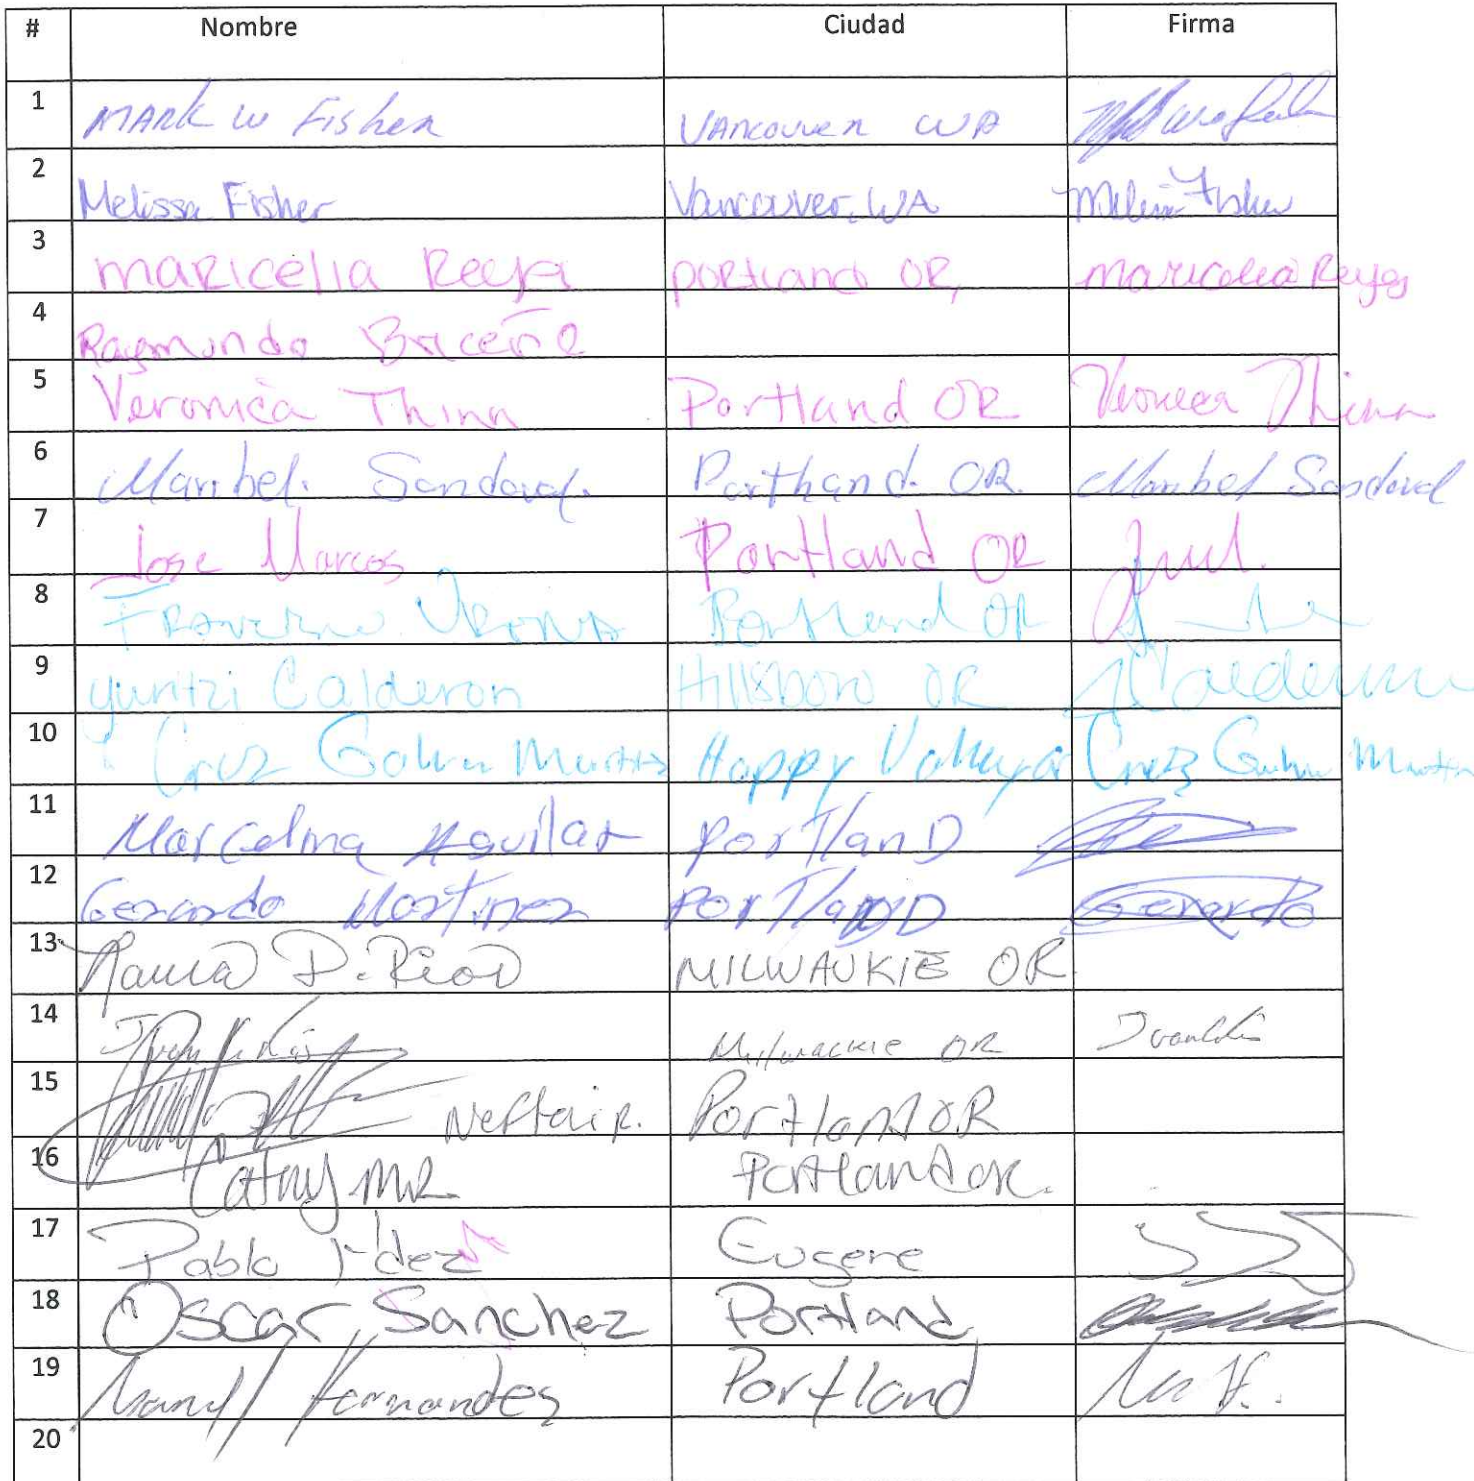 # Nombre Ciudad Firma
1 MARK W Fisher VANCOUVER WA
2 Melissa Fisher Vancouver, WA Melissa Fisher
3 maricelia Reyes portland OR, maricelia Reyes
4 Raymundo Briceño
5 Veronica Thinn Portland OR Veronica Thinn
6 Maribel. Sandoval. Porthand. OR. Maribel Sandoval
7 Jose Marcos Portland OR
8 Portland OR
9 yuritzi Calderon Hillsboro OR Calderon
10 Cruz Happy Valley or Cruz
11 Marcelina Aguilar PortlanD
12 Gerardo Martinez PortlanD Gerardo
13 MILWAUKIE OR
14 Milwackie OR
15 Neftai R. Portland OR
16 Cathy MR Portland OR.
17 Pablo Eugene
18 Oscar Sanchez Portland
19 Hernandez Portland
20